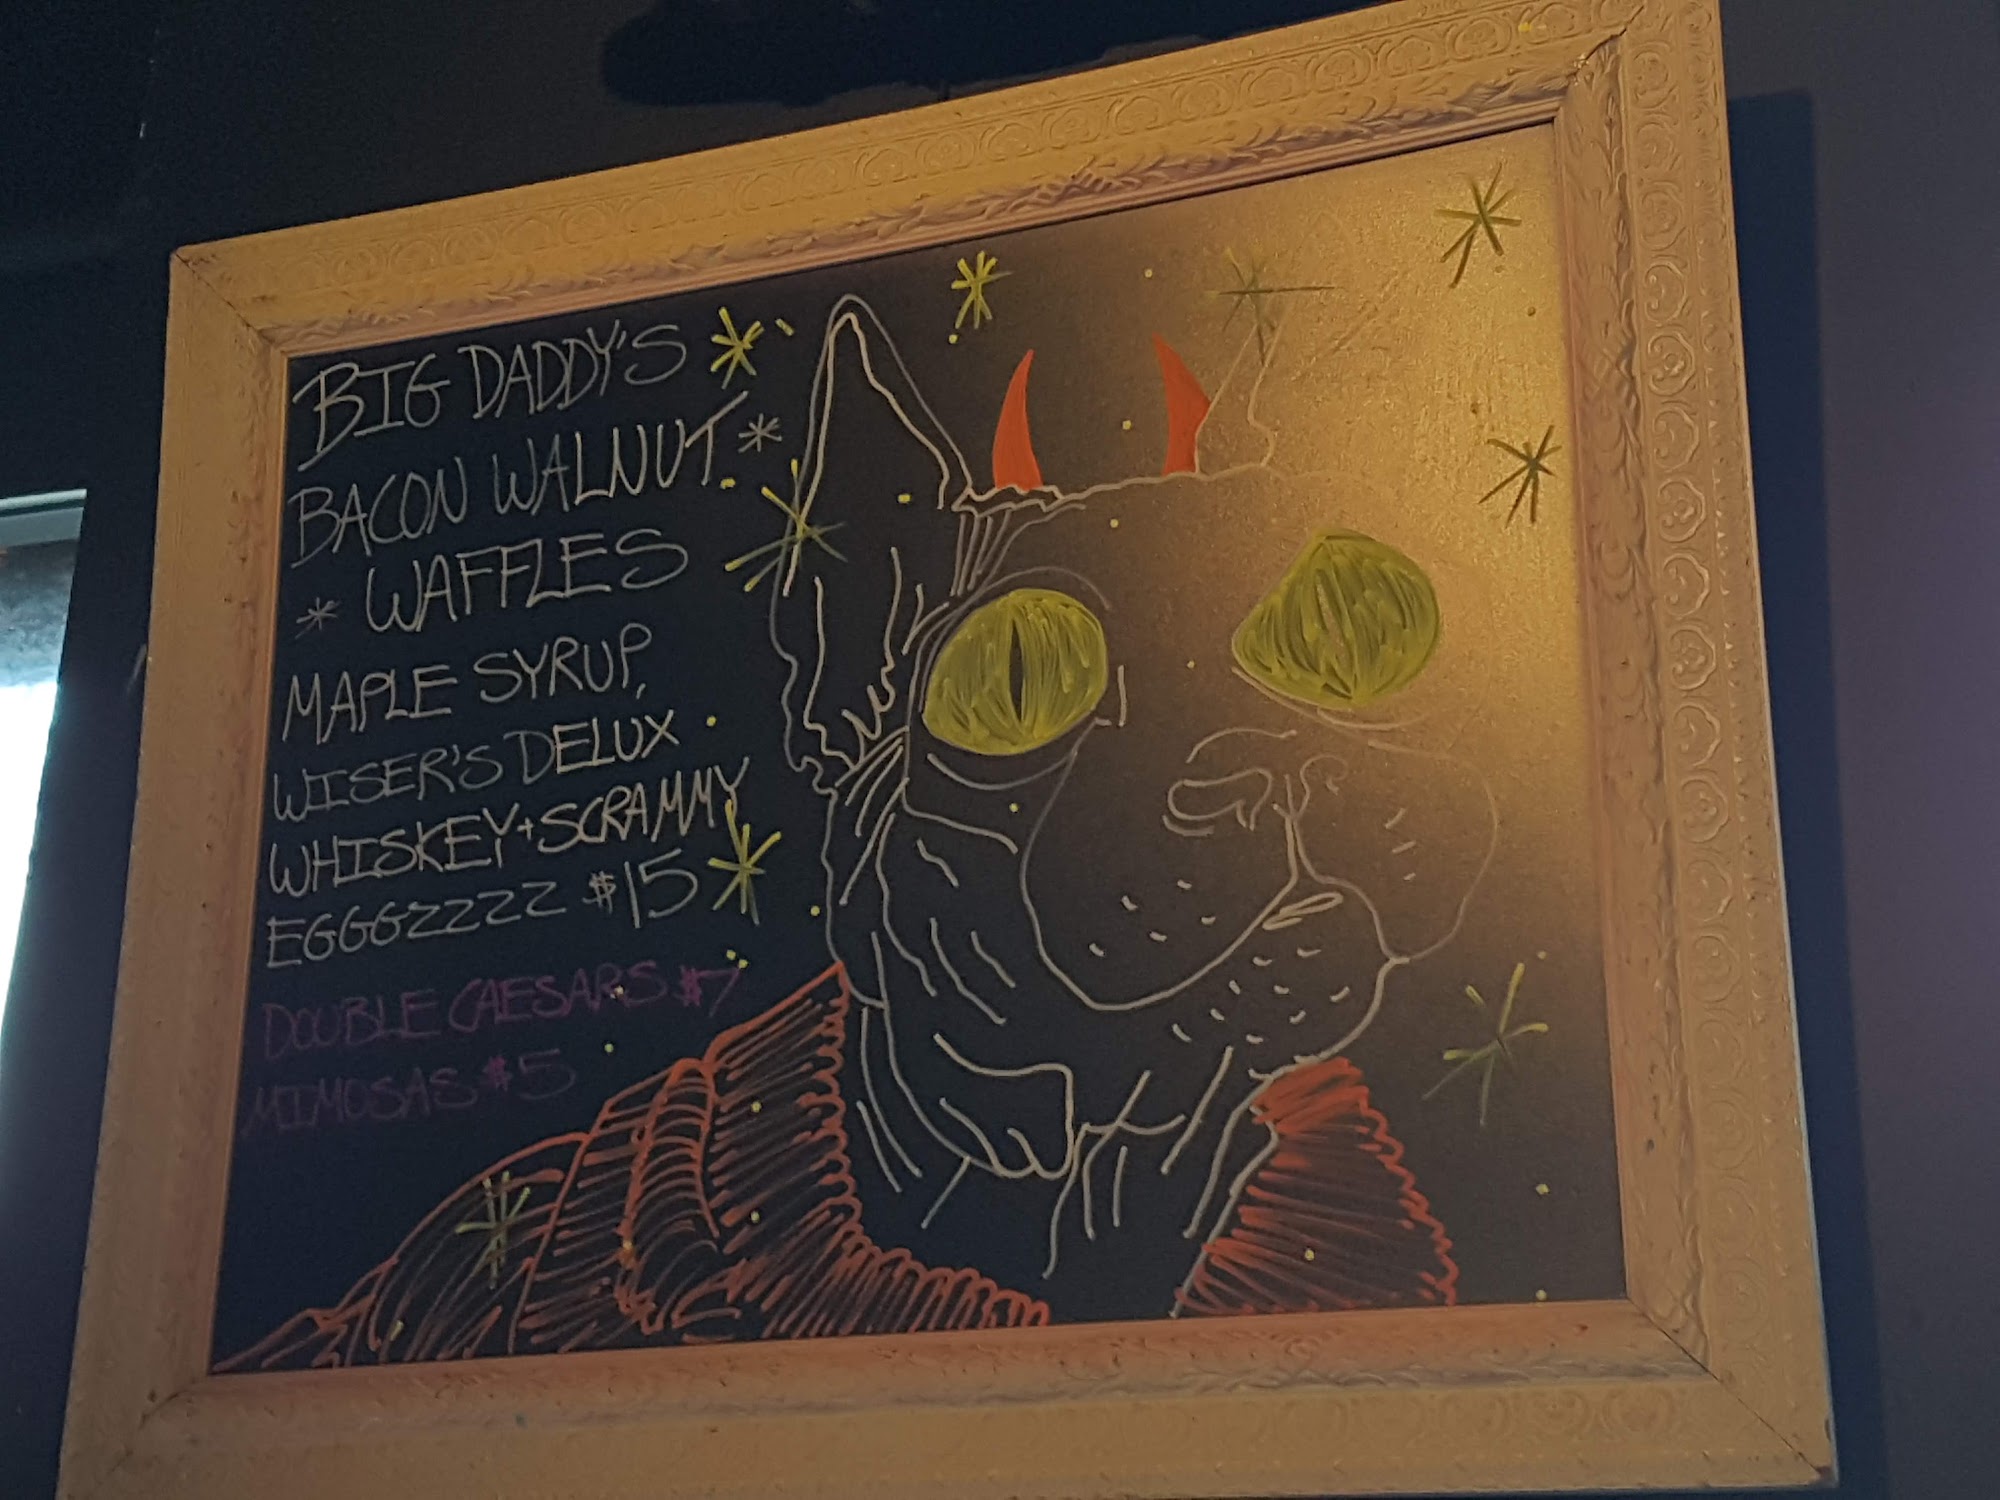 BIG DADDY'S
BACON WALNUT
WAFFLES
MAPLE SYRUP,
WISER'S DELUX
WHISKEY + SCRAMMY
EGGGZZZZ $15
DOUBLE CAESARS $7
MIMOSAS $5